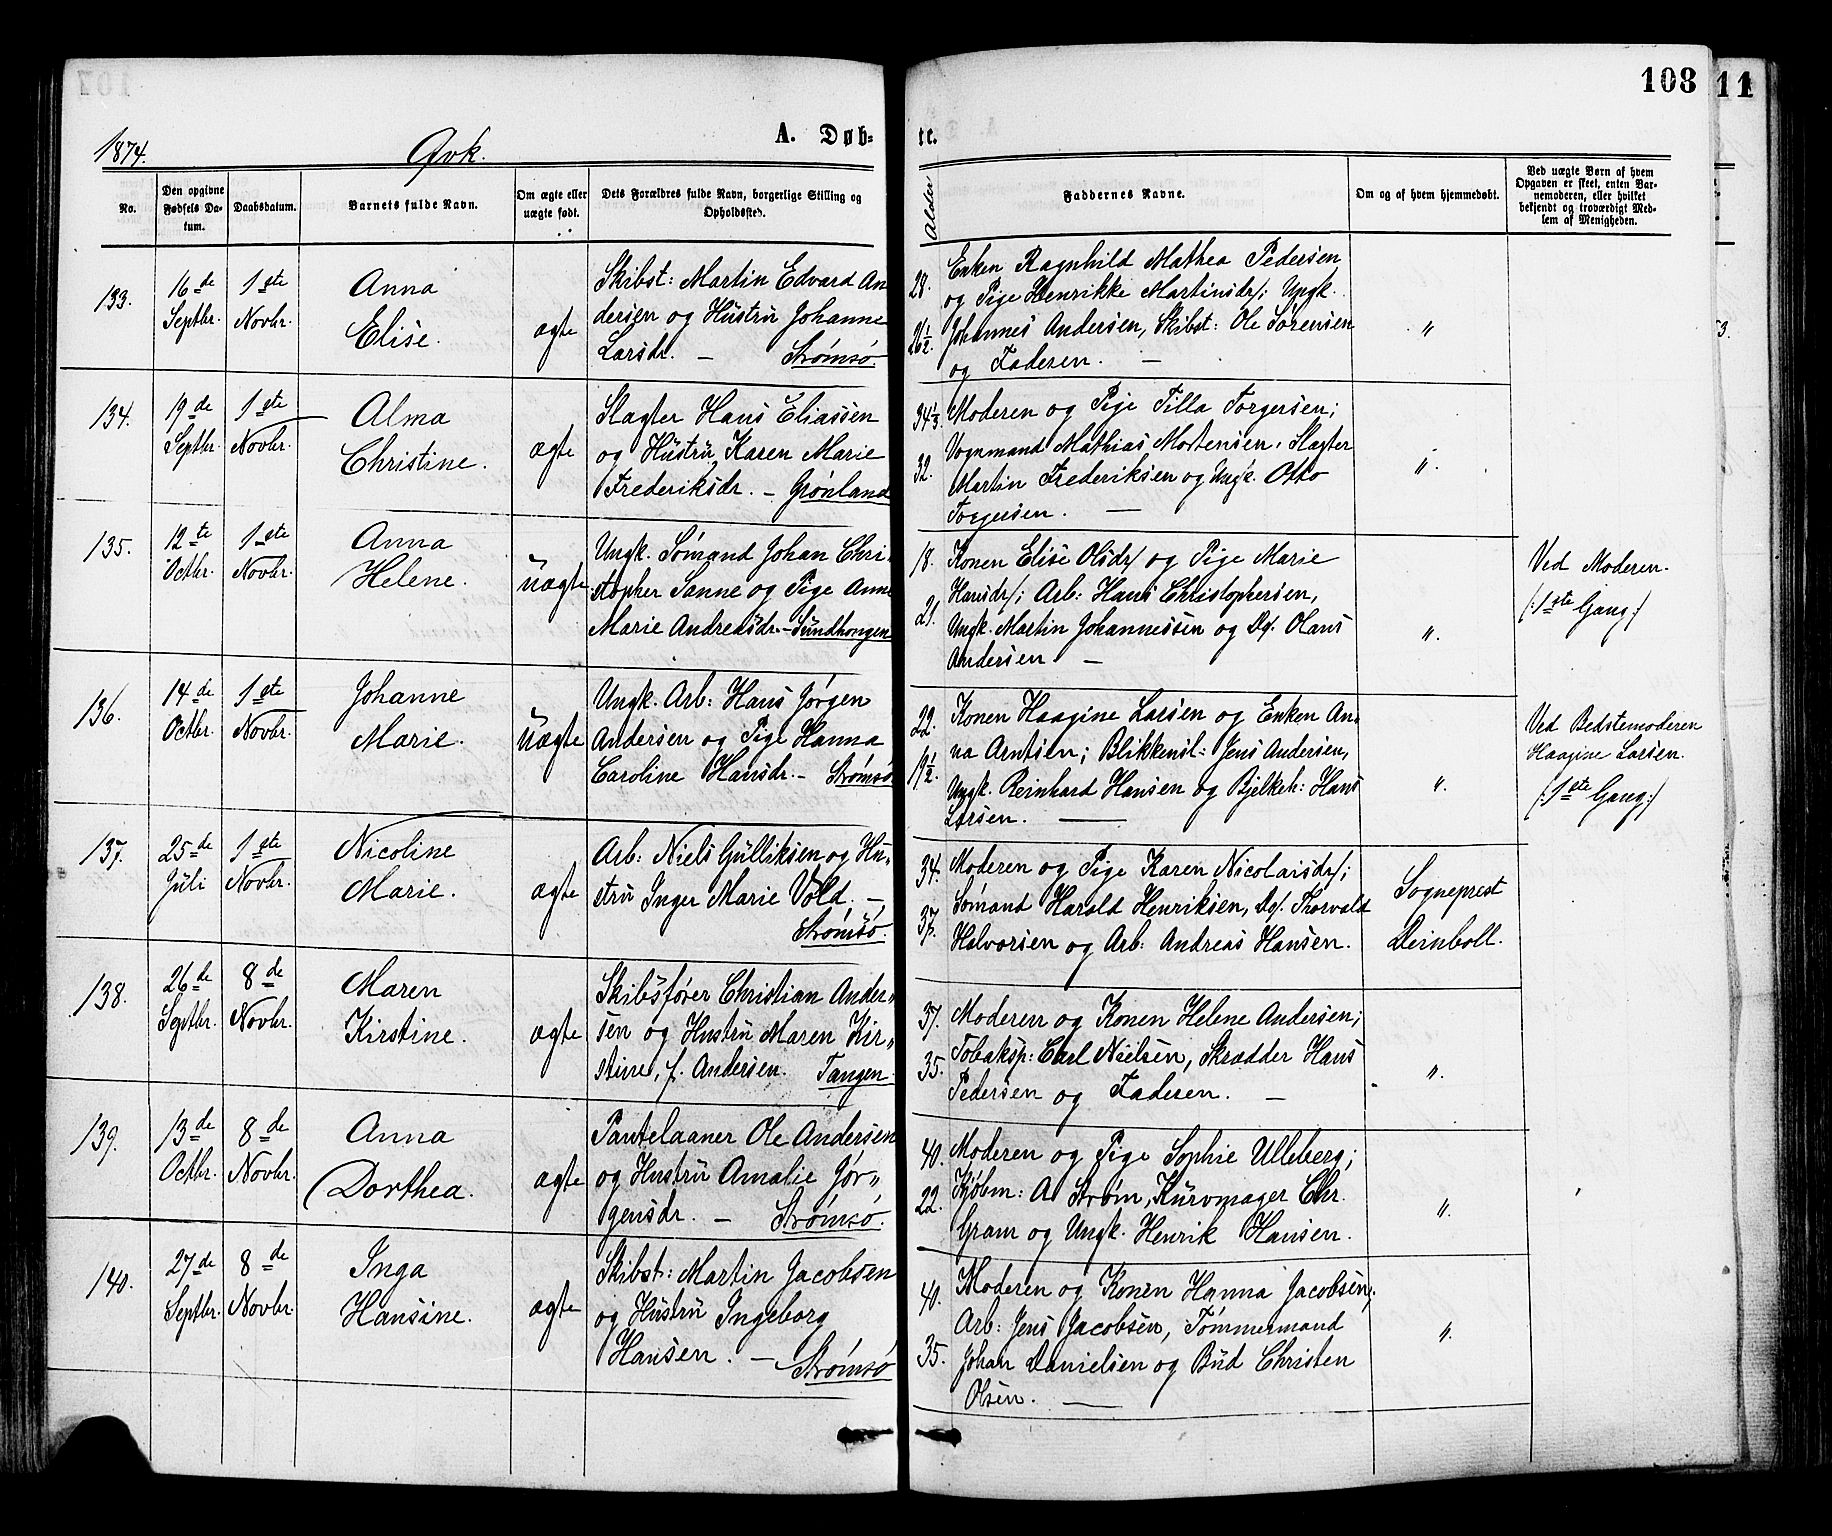 108
11
1874.
Qvk.
A. Døb-
te.
No.
Den opgivne
Fødsels Da-
tum.
Daabsdatum.
Barnets fulde Navn.
Om ægte eller
uægte født.
Dets Forældres fulde Navn, borgerlige Stilling og
Opholdssted.
Alder
Faddernes Navne.
Om og af hvem hjemmedøbt.
Ved uægte Børn af hvem
Opgaven er skeet, enten Bar-
nemoderen, eller hvilket
bekjendt og troværdigt Med-
lem af Menigheden.
133.
16de
Septbr.
1ste
Novbr.
Anna
Elise.
ægte
Skibst: Martin Edvard An
dersen og Hustru Johanne
Larsdr. — Strømsø
28.
26½.
Enken Ragnhild Mathea Pedersen
og Pige Henrikke Martinsdr/; Ungk.
Johannes Andersen, Skibst: Ole Sørensen
og Faderen. —
"
134.
19de
Septbr
1ste
Novbr.
Alma
Christine.
ægte
Slagter Hans Eliassen
og Hustru Karen Marie
Frederiksdr. — Grønland
34⅓
32.
Moderen og Pige Tilla Torgersen;
Vognmand Mathias Mortensen, Slagter
Martin Frederiksen og Ungk. Otto
Torgersen. —
".
135.
12te
Octbr.
1ste
Novbr.
Anna
Helene.
uægte
Ungk. Sømand Johan Chri-
stopher Sanne og Pige Anne
Marie Andreasdr. — Sundhougen
18.
21.
Konen Elise Olsdr/ og Pige Marie
Hansdr/; Arb: Hans Christophersen,
Ungk. Martin Johannessen og Do/. Olaus
Andersen —
".
Ved Moderen.
(:1ste Gang:)
136.
14de
Octbr.
1ste
Novbr.
Johanne
Marie.
uægte
Ungk. Arb: Hans Jørgen
Andersen og Pige Hanna
Caroline Hansdr. — Strømsø
22.
19½.
Konen Haagine Larsen og Enken An-
na Arntsen; Blikkensl: Jens Andersen,
Ungk. Reinhard Hansen og Bjelkeh: Hans
Larsen. —
".
Ved Bedstemoderen
Haagine Larsen.
(:1ste Gang:)
137.
25de
Juli
1ste
Novbr.
Nicoline
Marie.
ægte
Arb: Niels Gulliksen og Hu-
stru Inger Marie Vold. —
Strømsø.
34.
37.
Moderen og Pige Karen Nicolaisdr/;
Sømand Harald Henriksen, Do/. Thorvald
Halvorsen og Arb: Andreas Hansen.
Sogneprest
Deinboll.
138.
26de
Septbr.
8de
Novbr.
Maren
Kirstine.
ægte
Skibsfører Christian Ander-
sen og Hustru Maren Kir-
stine, f. Andersen. Tangen.
37.
35.
Moderen og Konen Helene Andersen;
Tobaksp: Carl Nielsen, Skrædder Hans
Pedersen og Faderen. —
".
139.
13de
Octbr.
8de
Novbr.
Anna
Dorthea.
ægte
Pantelaaner Ole Andersen
og Hustru Amalie Jør-
gensdr. — Strømsø.
40.
22.
Moderen og Pige Sophie Ulleberg;
Kjøbm: A Strøm, Kurvmager Chr.
Gram og Ungk. Henrik Hansen.
".
140.
27de
Septbr.
8de
Novbr.
Inga
Hansine.
ægte
Skibst: Martin Jacobsen
og Hustru Ingeborg
Hansen. — Strømsø
40.
35.
Moderen og Konen Hanna Jacobsen;
Arb: Jens Jacobsen, Tømmermand
Johan Danielsen og Bud Christen
Olsen. —
".